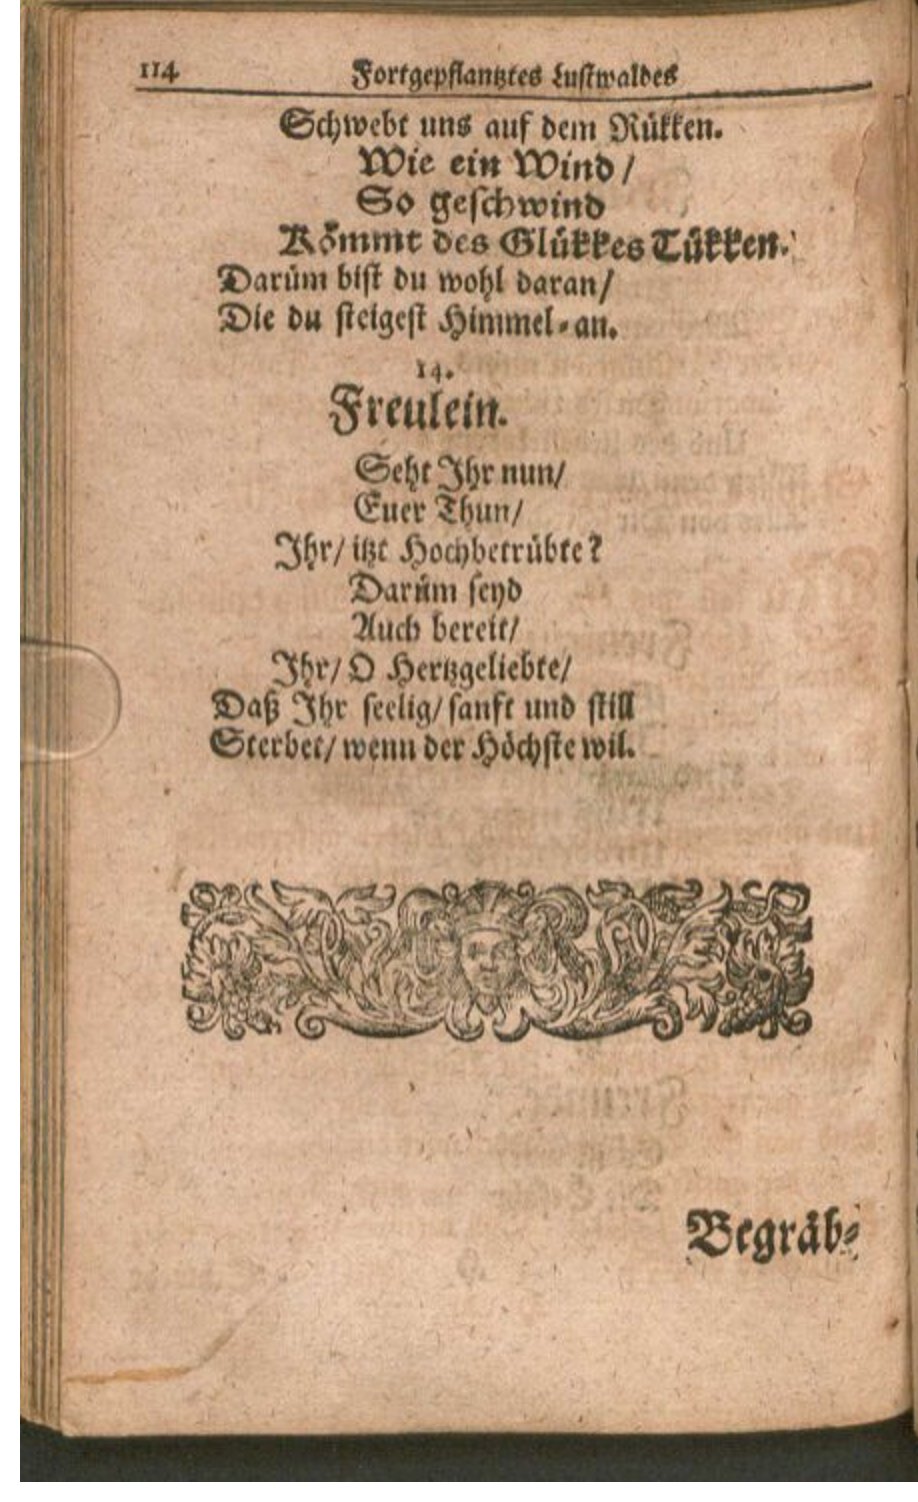 114 Fortgepflantztes Lustwaldes
Schwebt uns auf dem Rükken.
Wie ein Wind/
So geschwind
Kömmt des Glükkes Tükken.
Darüm bist du wohl daran/
Die du steigest Himmel-an.
14.
Freulein.
Seht Ihr nun/
Euer Thun/
Ihr/ itzt Hochbetrübte?
Darüm seyd
Auch bereit/
Ihr/ O Hertzgeliebte/
Daß Ihr seelig/ sanft und still
Sterbet/ wenn der Höchste wil.
Begräb-